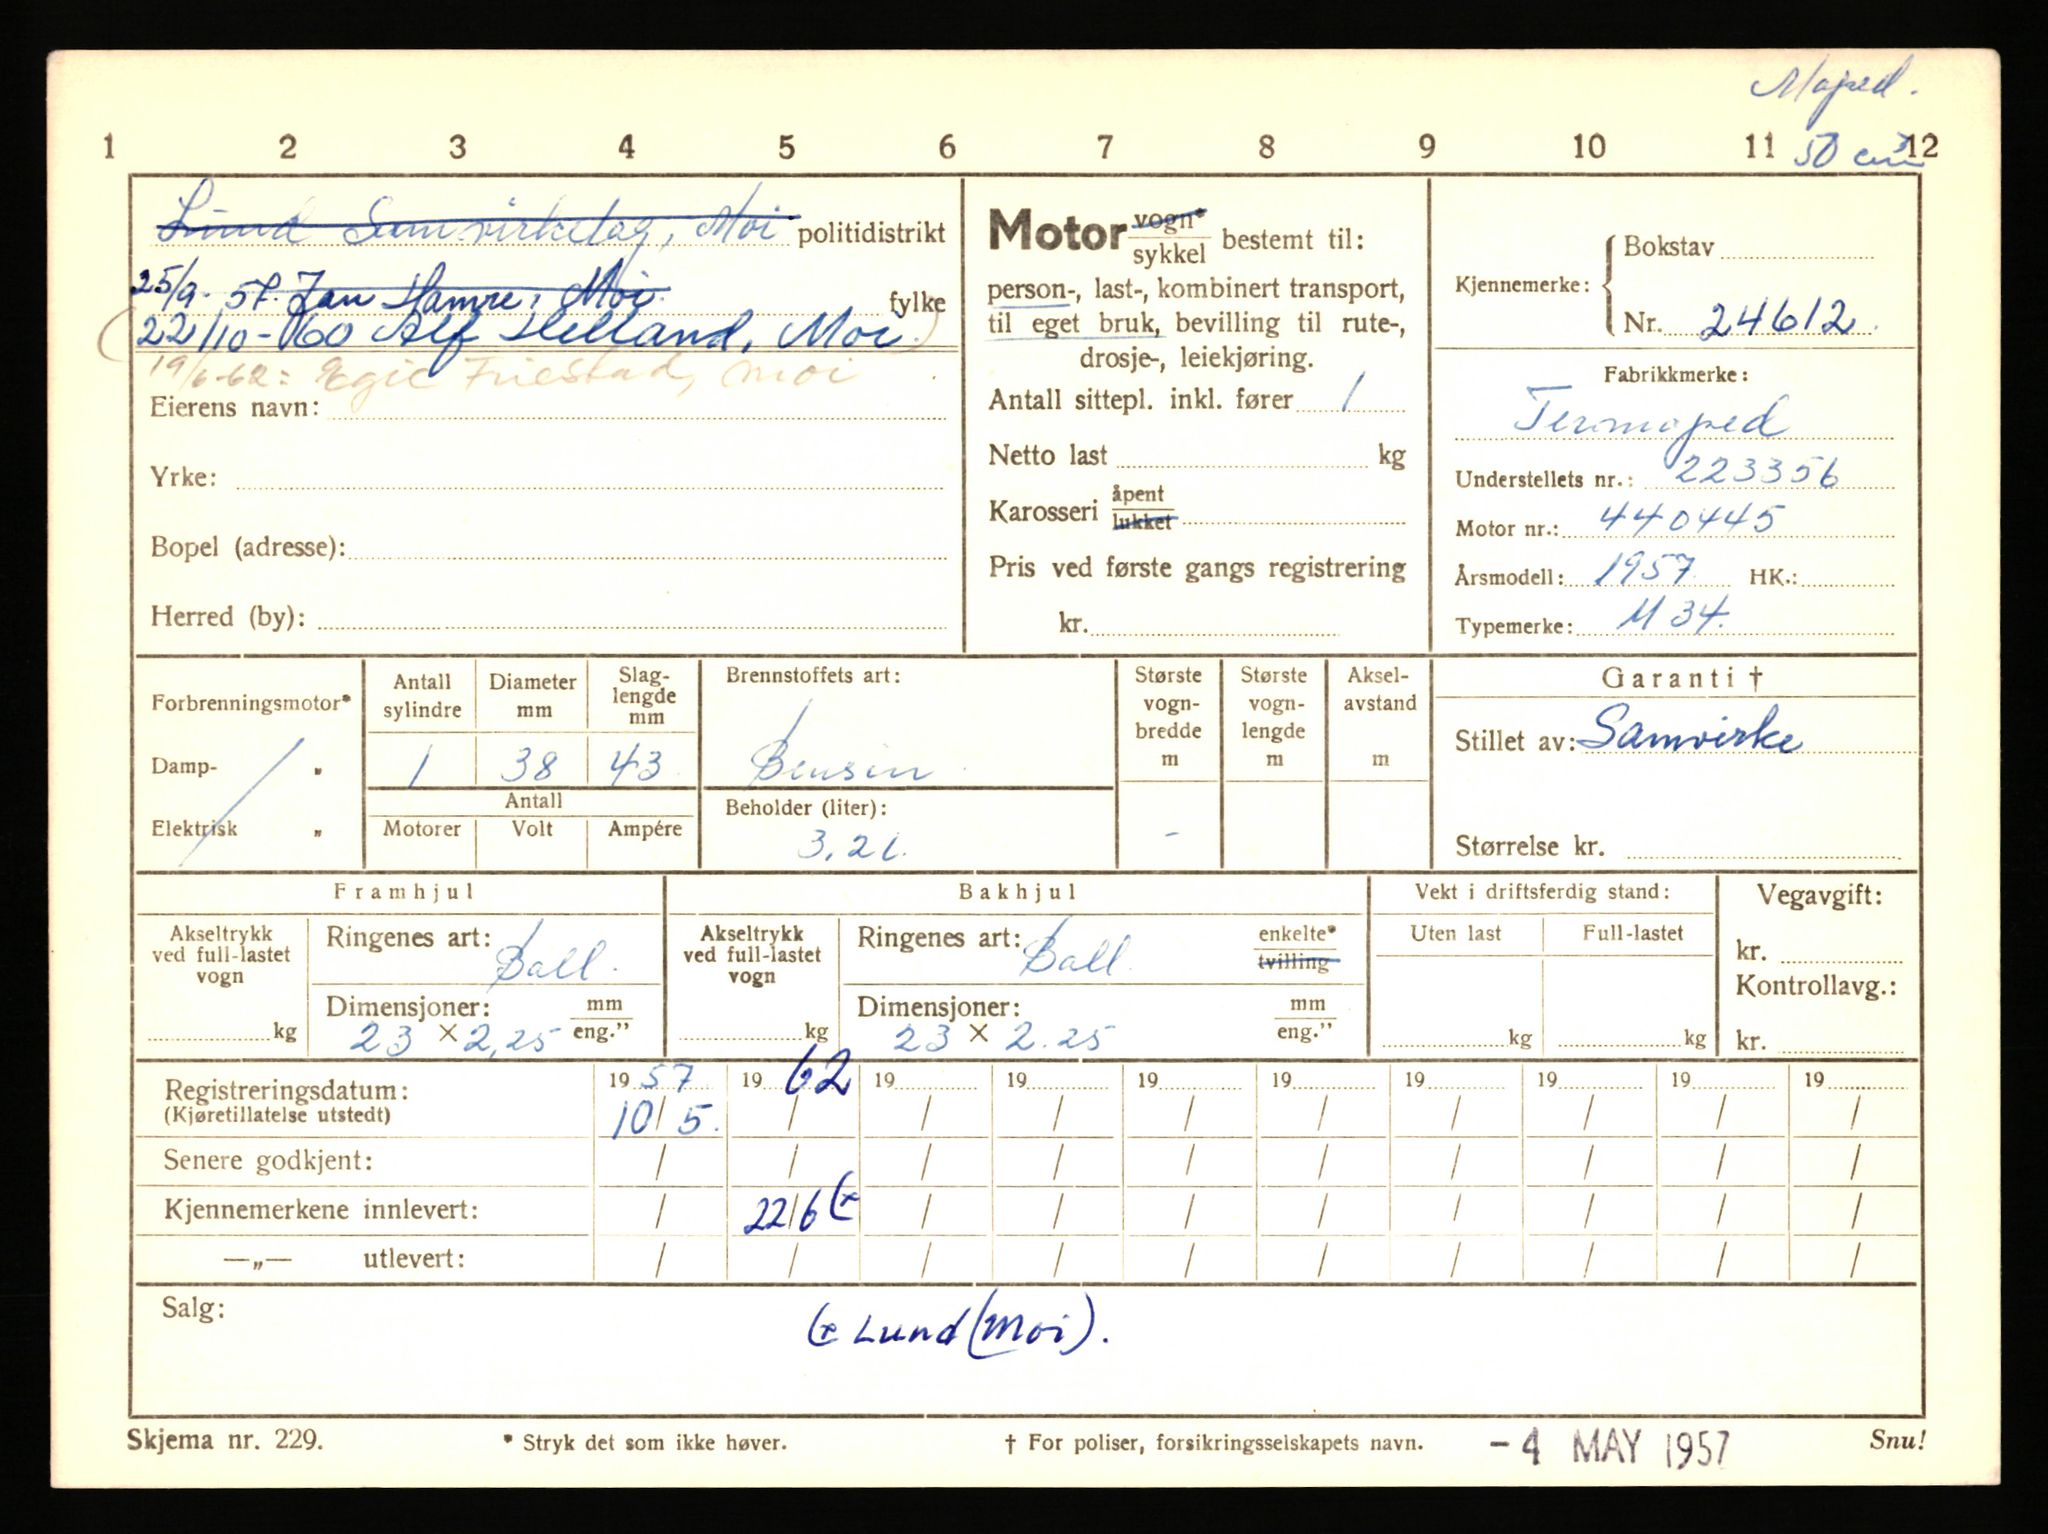 Moped.
1 2 3 4 5 6 7 8 9 10 11 50 cm³ 12
Lund Samvirkelag, Moi politidistrikt
25/9-57. Jan Hamre, Moi. fylke
(22/10-60 Alf Helland, Moi.)
19/6-62: Egil Friestad, Moi
Eierens navn:
Yrke:
Bopel (adresse):
Herred (by):
Motor vogn* / sykkel bestemt til:
person-, last-, kombinert transport,
til eget bruk, bevilling til rute-,
drosje-, leiekjøring.
Antall sittepl. inkl. fører 1
Netto last kg
Karosseri åpent / lukket
Pris ved første gangs registrering
kr.
Kjennemerke: Bokstav
Nr. 24612.
Fabrikkmerke:
Termoped
Understellets nr.: 223356
Motor nr.: 440445
Årsmodell: 1957. HK.:
Typemerke: M 34.
Forbrenningsmotor*
Damp- „
Elektrisk „
Antall sylindre
1
Diameter mm
38
Slag-
lengde
mm
43
Antall
Motorer Volt Ampére
Brennstoffets art:
Bensin
Beholder (liter):
3,2 l.
Største
vogn-
bredde
m
-
Største
vogn-
lengde
m
Aksel-
avstand
m
Garanti †
Stillet av: Samvirke
Størrelse kr.
Framhjul
Akseltrykk
ved full-lastet
vogn
kg
Ringenes art:
Ball.
Dimensjoner: mm
23 × 2,25 eng.”
Bakhjul
Akseltrykk
ved full-lastet
vogn
kg
Ringenes art: enkelte*
Ball. tvilling
Dimensjoner: mm
23 × 2.25 eng.”
Vekt i driftsferdig stand:
Uten last Full-lastet
kg kg
Vegavgift:
kr.
Kontrollavg.:
kr.
Registreringsdatum: 19 57 19 62 19 19 19 19 19 19 19 19
(Kjøretillatelse utstedt) 10/5. / / / / / / / / /
Senere godkjent: / / / / / / / / / /
Kjennemerkene innlevert: / 22/6 (x / / / / / / / /
—„— utlevert: / / / / / / / / / /
Salg:
(x Lund (Moi).
Skjema nr. 229. * Stryk det som ikke høver. † For poliser, forsikringsselskapets navn. -4 MAY 1957 Snu!